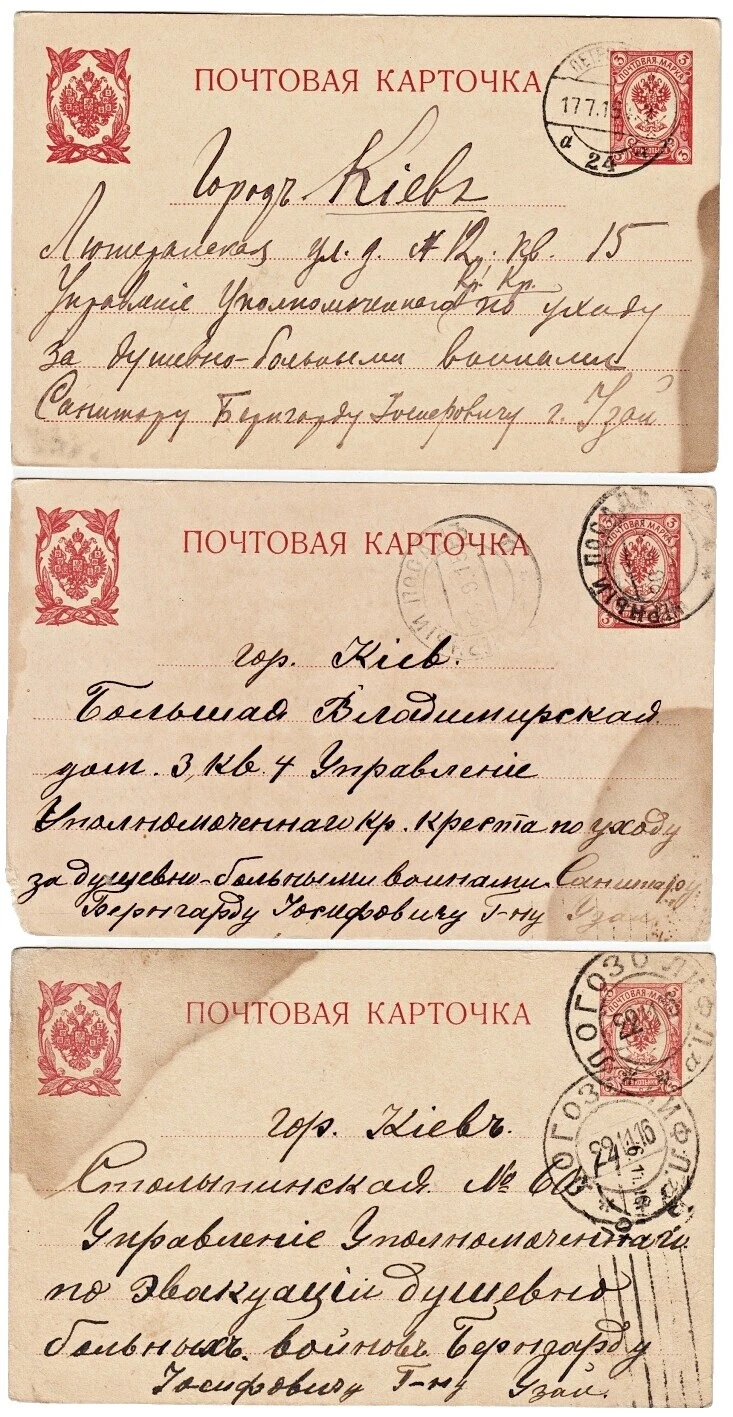 ПОЧТОВАЯ КАРТОЧКА
ПОЧТОВАЯ МАРКА
3 3
3 3
17.7.16
а 24
Городъ Кіевъ
Лютеранская ул. д. № 12. кв. 15
Кр. Кр.
Управленіе Уполномоченнаго по уходу
за душевно-больными воинами
Санитару Бернгарду Іосифовичу г. Узай
ПОЧТОВАЯ КАРТОЧКА
ПОЧТОВАЯ МАРКА
3 3
3
ПОСАДЪ
гор. Кіев.
Большая Владимирская
дом. 3, кв. 4 Управленіе
Уполномоченнаго кр. креста по уходу
за душевно-больными воинами Санитару
Бернгарду Іосифовичу Г-ну Узай
ПОЧТОВАЯ КАРТОЧКА
ПОЧТОВАЯ МАРКА
ЛОГОЗО ЛИФЛ.
22
ЛИФЛ.
22.11.16
гор. Кіевъ.
Столыпинская. №
Управленіе Уполномоченнаго
по эвакуаціи душевно
больныхъ. войновъ Бернгарду
Іосифовичу Г-ну Узай.